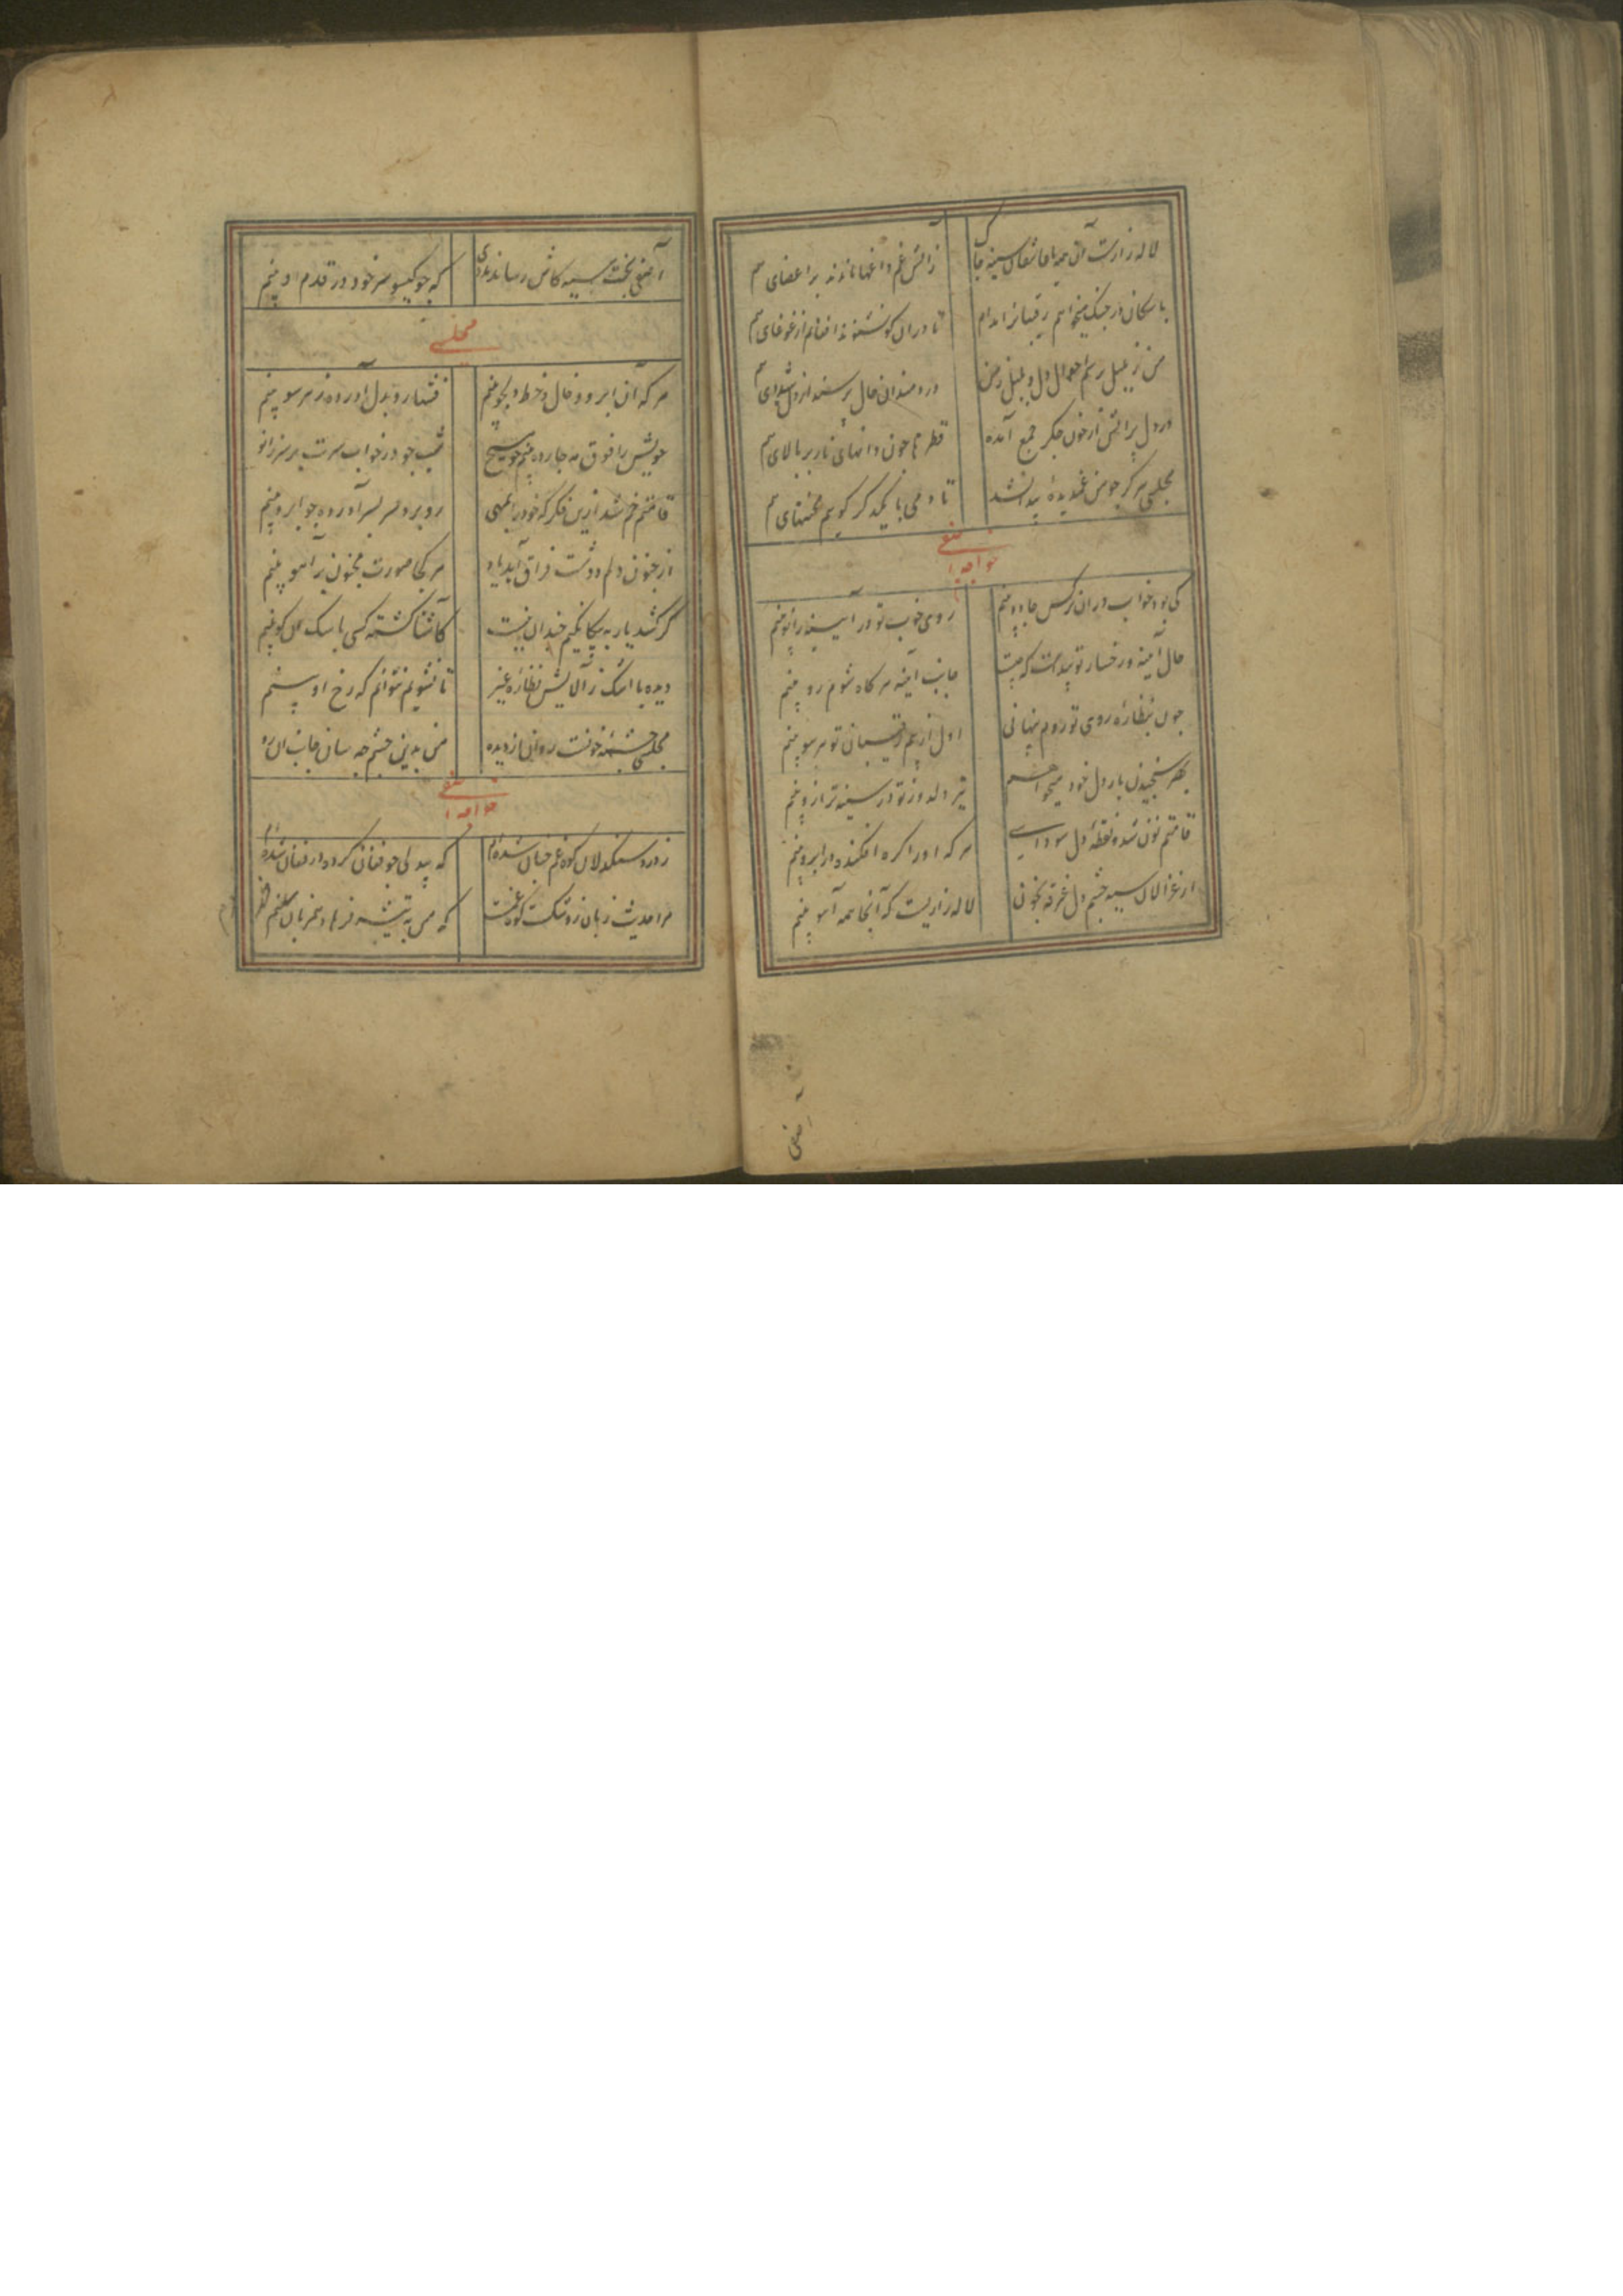 لاله زارست آن همه با عاشقان سینه چاک
ز آتش غم داغها ماندند بر اعضای هم
با سکان در جنک میخواهم رقیبانرا مدام
تا دران کو نشنوند افغانم از غوغای هم
من ز بلبل پرسم احوال دل و بلبل ز من
دردمندان حال پرسند از دل شیدای هم
در دل پر آتش از خون جکر جمع آمده
قطره‌ها چون دانهای نار بر بالای هم
مجلسی هرکز چو من غمدیده پیدا نشد
تا دمی با یکدکر کویم غمهای هم
خواجه آصفی
کی بود خواب دران نرکس جادو بینم
روی خوب تو در آیینه زانو بینم
حال آینه و رخسار تو پیداست که چیست
جانب آینه هر کاه شوم رو بینم
چون بنظاره روی تو روم پنهانی
اول از بیم رقیبان تو هر سو بینم
بهر سنجیدن بار دل خود میخواهم
تیر دلدوز تو در سینه ترازو بینم
قامتم نون شده نقطه دل سودایی
هر که او را کره افکنده در ابرو بینم
از غزالان سیه چشم دل غرقه بخون
لاله زاریست که آنجا همه آهو بینم
آصفی
آصفی بخت سیه کاش رساند بدی
که چو کیسو سر خود در قدم او بینم
مجلسی
هر که آن ابرو و خال و خط دلجو بینم
فتنها رو بدل آورده ز هر سو بینم
خویش را فوق مه چارده بینم چو مسیح
شب چو در خواب سرت بر سر زانو
قامتم خم شد ازین فکر که خود را بمهی
رو برو سر بسر آورده چو ابرو بینم
از جنون دلم و دشت فراق آید یاد
هر کجا صورت مجنون بر آهو بینم
کر کشد یار به بیکانکیم چندان نیست
کاشنا کشته کسی با سک آن کو بینم
دیده با اشک ز آلایش نظاره غیر
تا نشویم نتوانم که رخ او بینم
مجلسی چشمه خونست روان از دیده
من بدین چشم چه سان جانب آن رو
خواجه آصفی
ز درد سنکدلان کوه غم چنان شده‌ام
که بیدلی چو فغان کرده در فغان شده‌ام
مرا حدیث ز بان زد شکست کوه غمست
که من به تیشه فرهاد همزبان شده‌ام